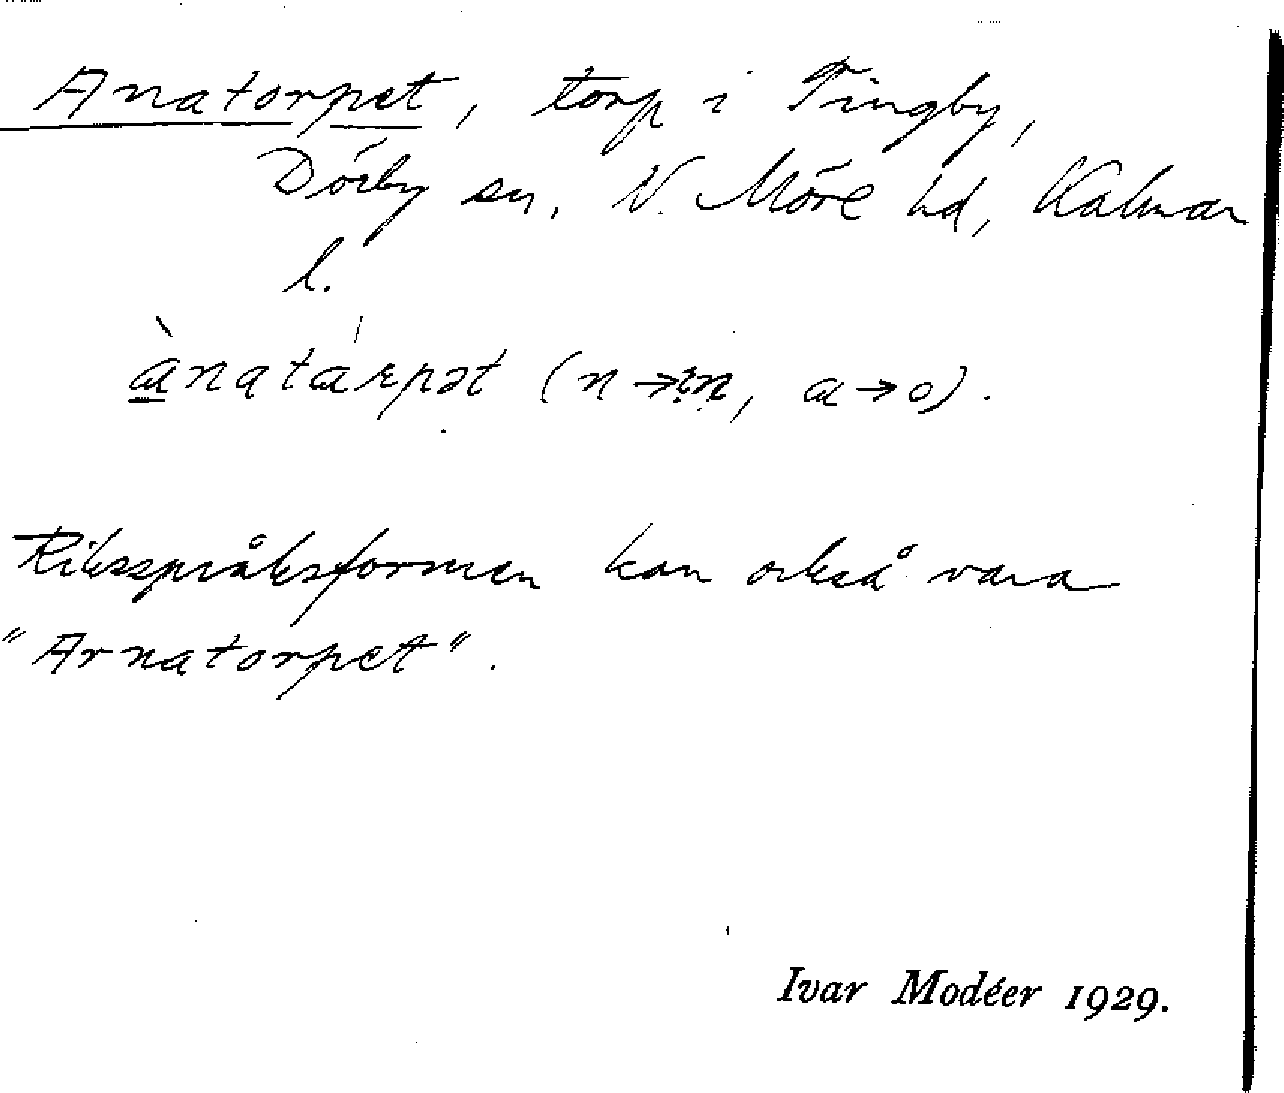 Anatorpet, torp i Tingby,
Dörby sn, N. Möre hd, Kalmar
l.
ànatárpət (n→rn, a→o).
Riksspråksformen kan också vara
"Arnatorpet".
Ivar Modéer 1929.